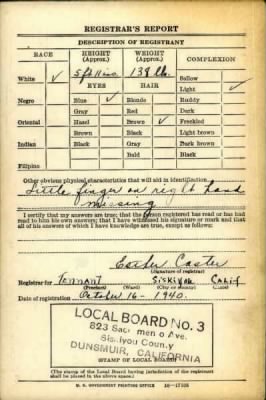 REGISTRAR'S REPORT
DESCRIPTION OF REGISTRANT
RACE HEIGHT (Approx.) WEIGHT (Approx.) COMPLEXION
White ✓ 5 ft 138 lb. Sallow
EYES HAIR Light ✓
Negro Blue ✓ Blonde Ruddy
Gray Red Dark
Oriental Hazel Brown ✓ Freckled
Brown Black Light brown
Indian Black Gray Dark brown
Bald Black
Filipino
Other obvious physical characteristics that will aid in identification
Little finger on right hand
missing
I certify that my answers are true; that the person registered has read or has had
read to him his own answers; that I have witnessed his signature or mark and that
all of his answers of which I have knowledge are true, except as follows:
Esther Caster
(Signature of registrar)
Registrar for Tennant Siskiyou Calif
(Precinct) (Ward) (City or county) (State)
Date of registration October 16 - 1940.
LOCAL BOARD NO. 3
823 Sac men o Ave.
Sis iyou County
DUNSMUIR, CALIFORNIA
(STAMP OF LOCAL BOARD)
(The stamp of the Local Board having jurisdiction of the registrant
shall be placed in the above space.)
U. S. GOVERNMENT PRINTING OFFICE 16-17105